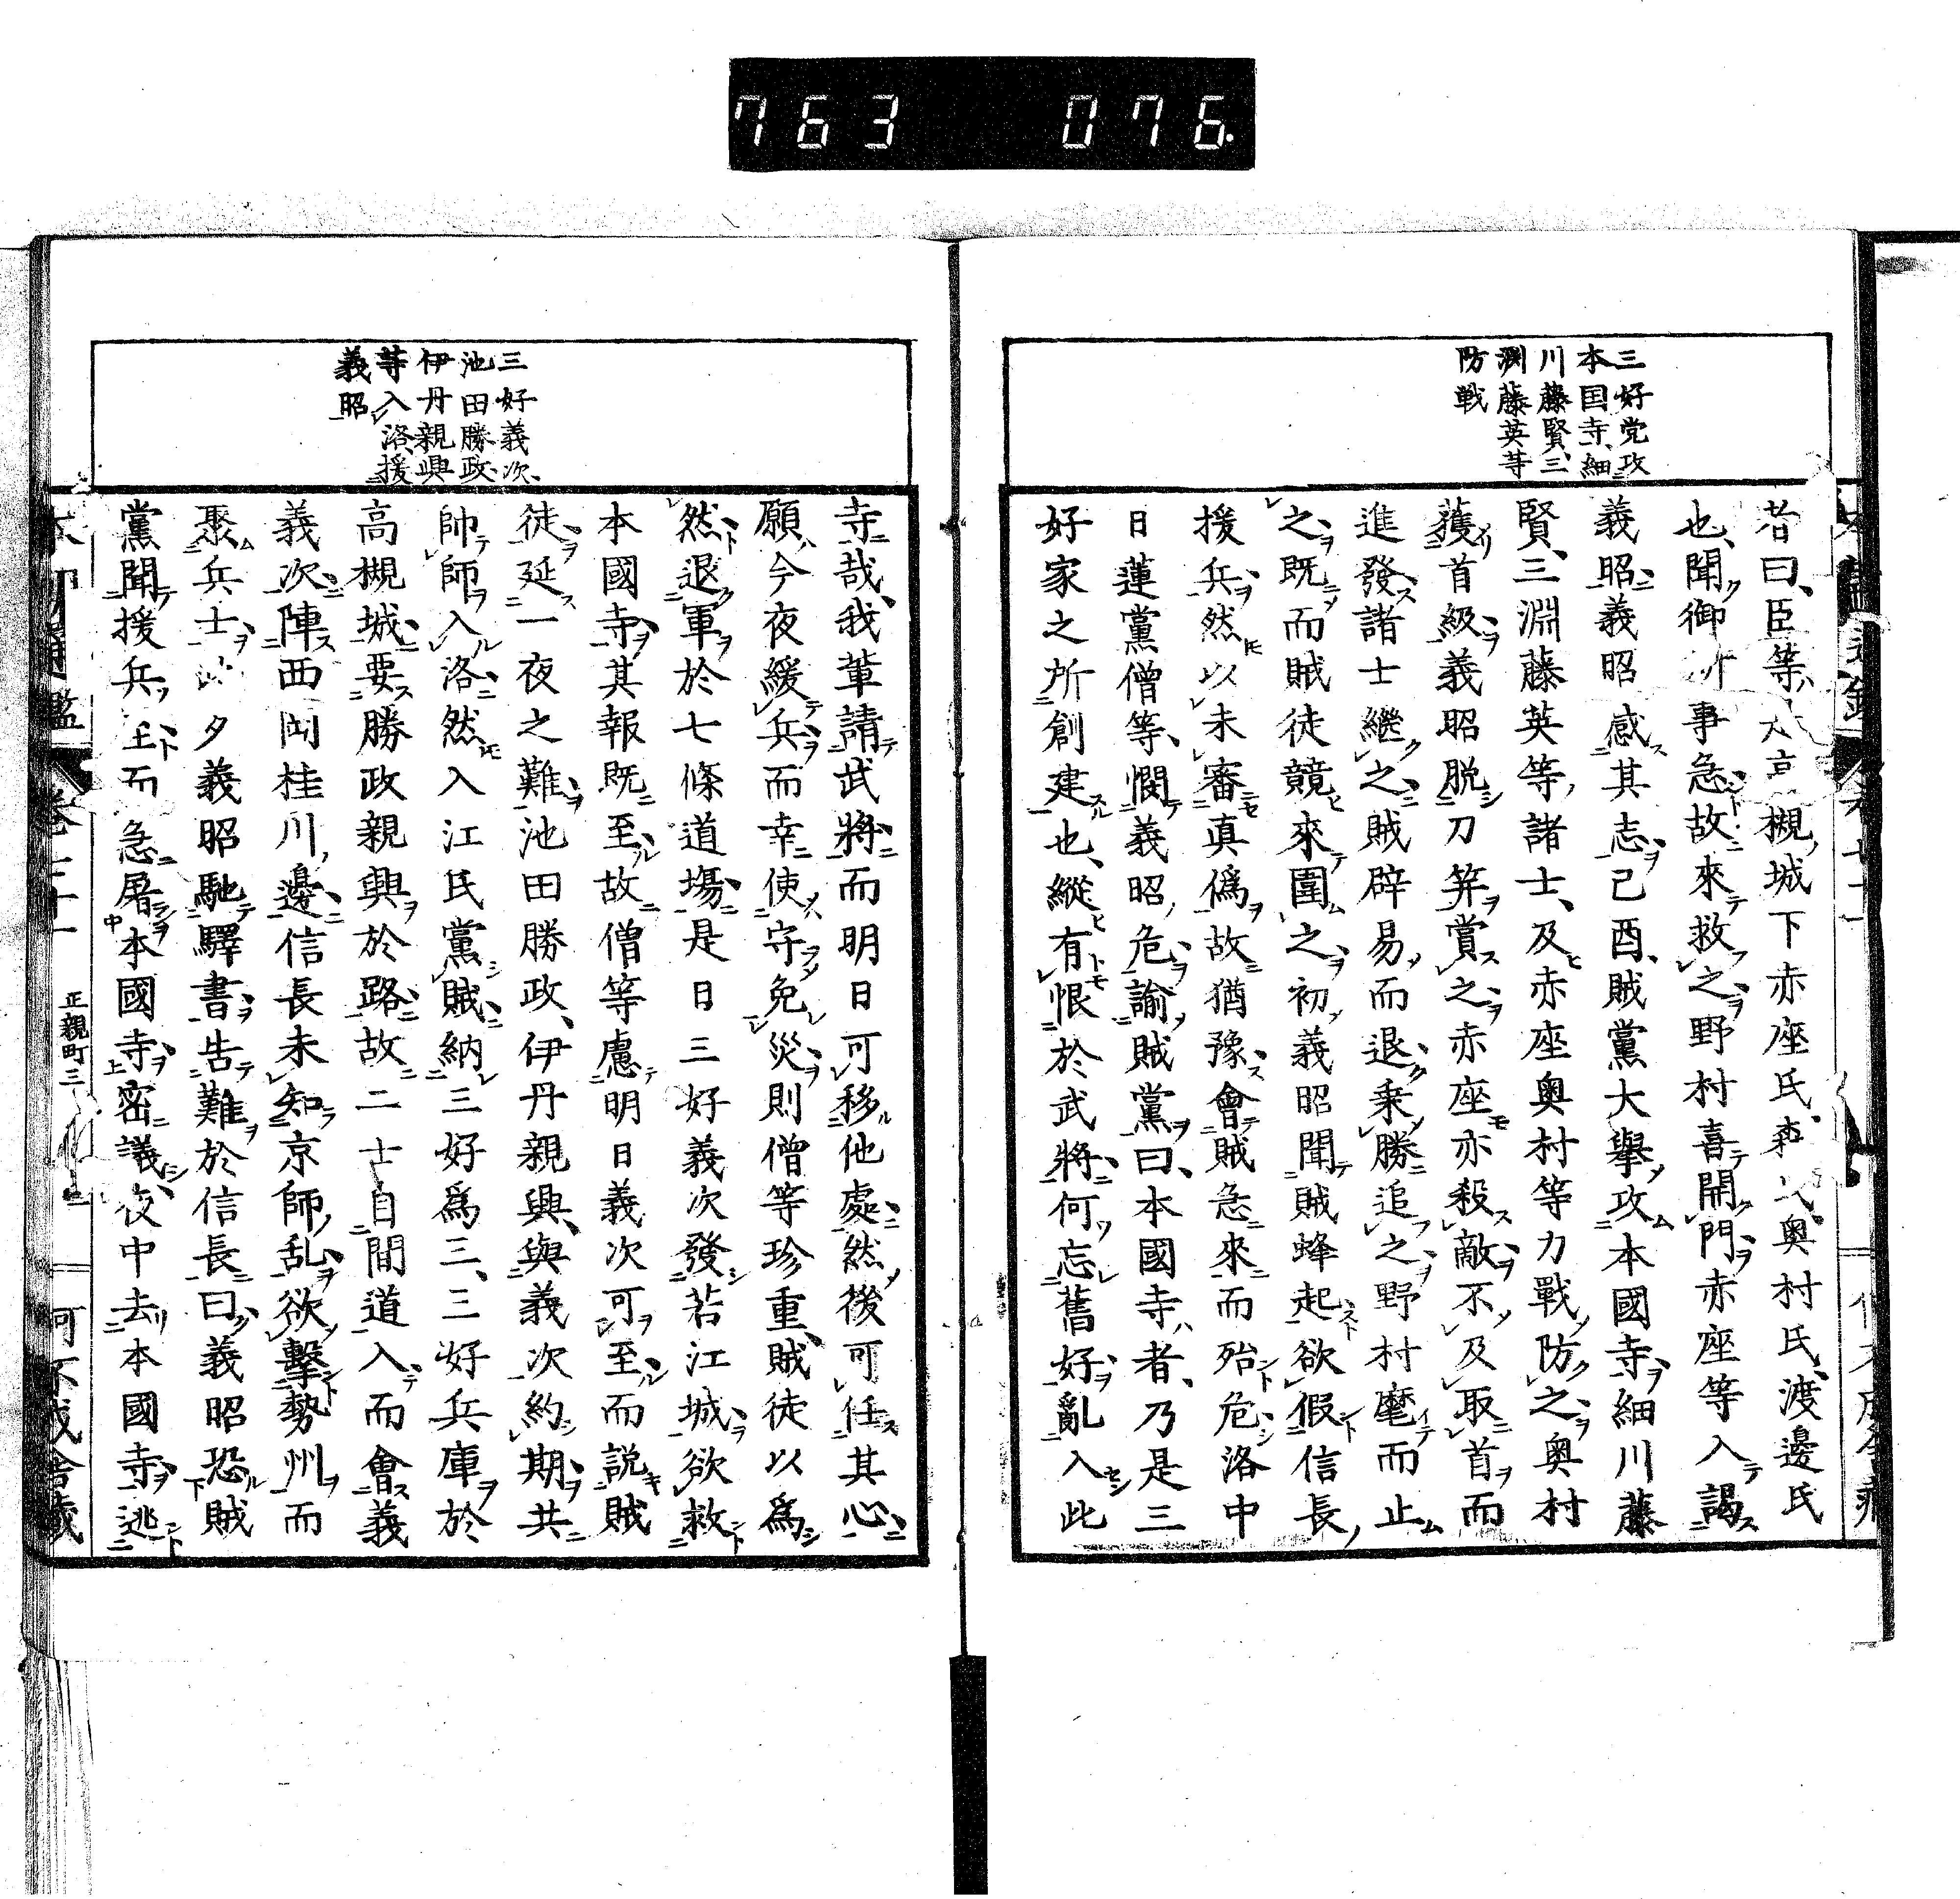 763 076
三好党攻
本国寺、細
川藤賢、三
渕藤英等
防戦
若曰、臣等、 高槻城下赤座氏、森氏、奥村氏、渡邊氏
也、聞御所事急故來救之野村喜開門赤座等入謁
義昭義昭感其志己酉、賊黨大擧攻本國寺細川藤
賢、三淵藤英等諸士、及赤座奥村等力戰防之奥村
獲首級義昭脱刀笄賞之赤座亦殺敵不及取首而
進發諸士繼之賊辟易而退乗勝追之野村麾而止
之既而賊徒競來圍之初義昭聞賊蜂起欲假信長
援兵然以未審真偽故猶豫會賊急來而殆危洛中
日蓮黨僧等、憫義昭危諭賊黨曰、本國寺者、乃是三
好家之所創建也、縱有恨於武將何忘舊好亂入此
三好義次、
池田勝政、
伊丹親興
等入洛援
義昭
寺哉、我輩請武將而明日可移他處然後可任其心
願今夜緩兵而幸使守免災則僧等珍重、賊徒以爲
然退軍於七條道場是日三好義次發若江城欲救
本國寺其報既至故僧等慮明日義次可至而説賊
徒延一夜之難池田勝政、伊丹親興、與義次約期共
帥師入洛然入江氏黨賊納三好爲三、三好兵庫於
高槻城要勝政親興於路故二士自間道入而會義
義次陣西岡桂川邊信長未知京師乱欲擊勢州而
聚兵士此夕義昭馳驛書告難於信長曰義昭恐賊
黨聞援兵至而急屠本國寺密議夜中去本國寺逃
本朝通鑑 卷七十一 正親町三